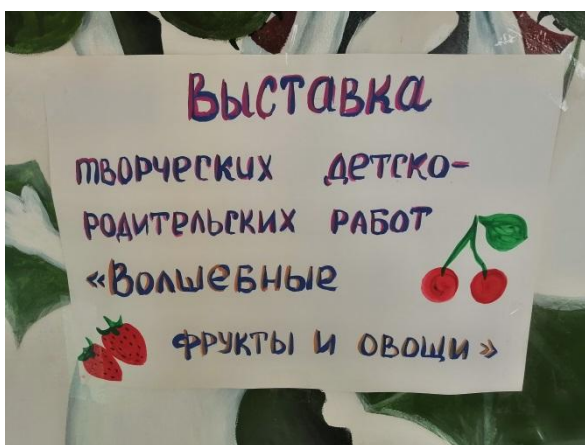 Выставка
творческих детско-
родительских работ
«Волшебные
фрукты и овощи»